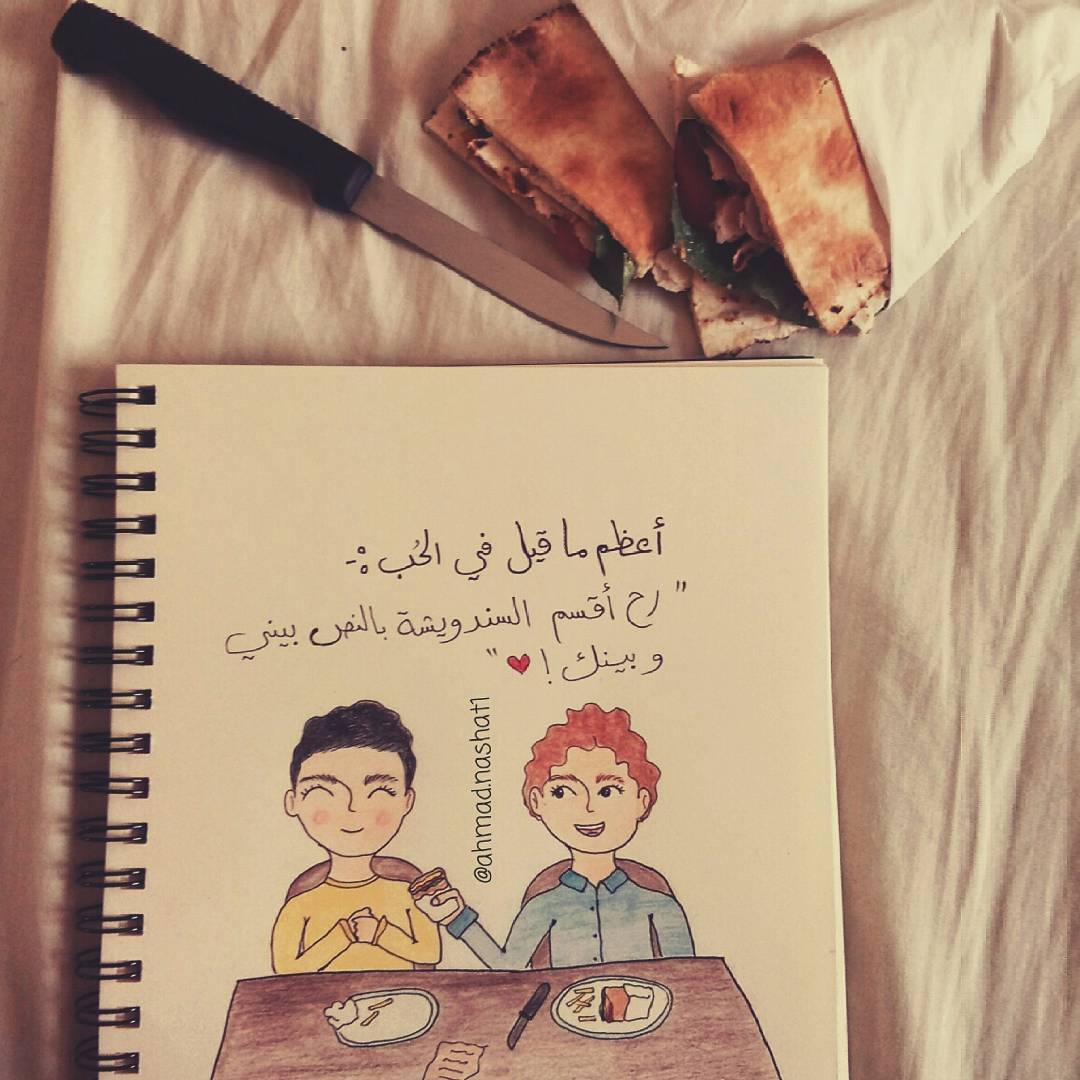 أعظم ما قيل في الحُب :-
" رح أقسم السندويشة بالنص بيني
و بينك ! ♥ "
@ahmad.nashat1